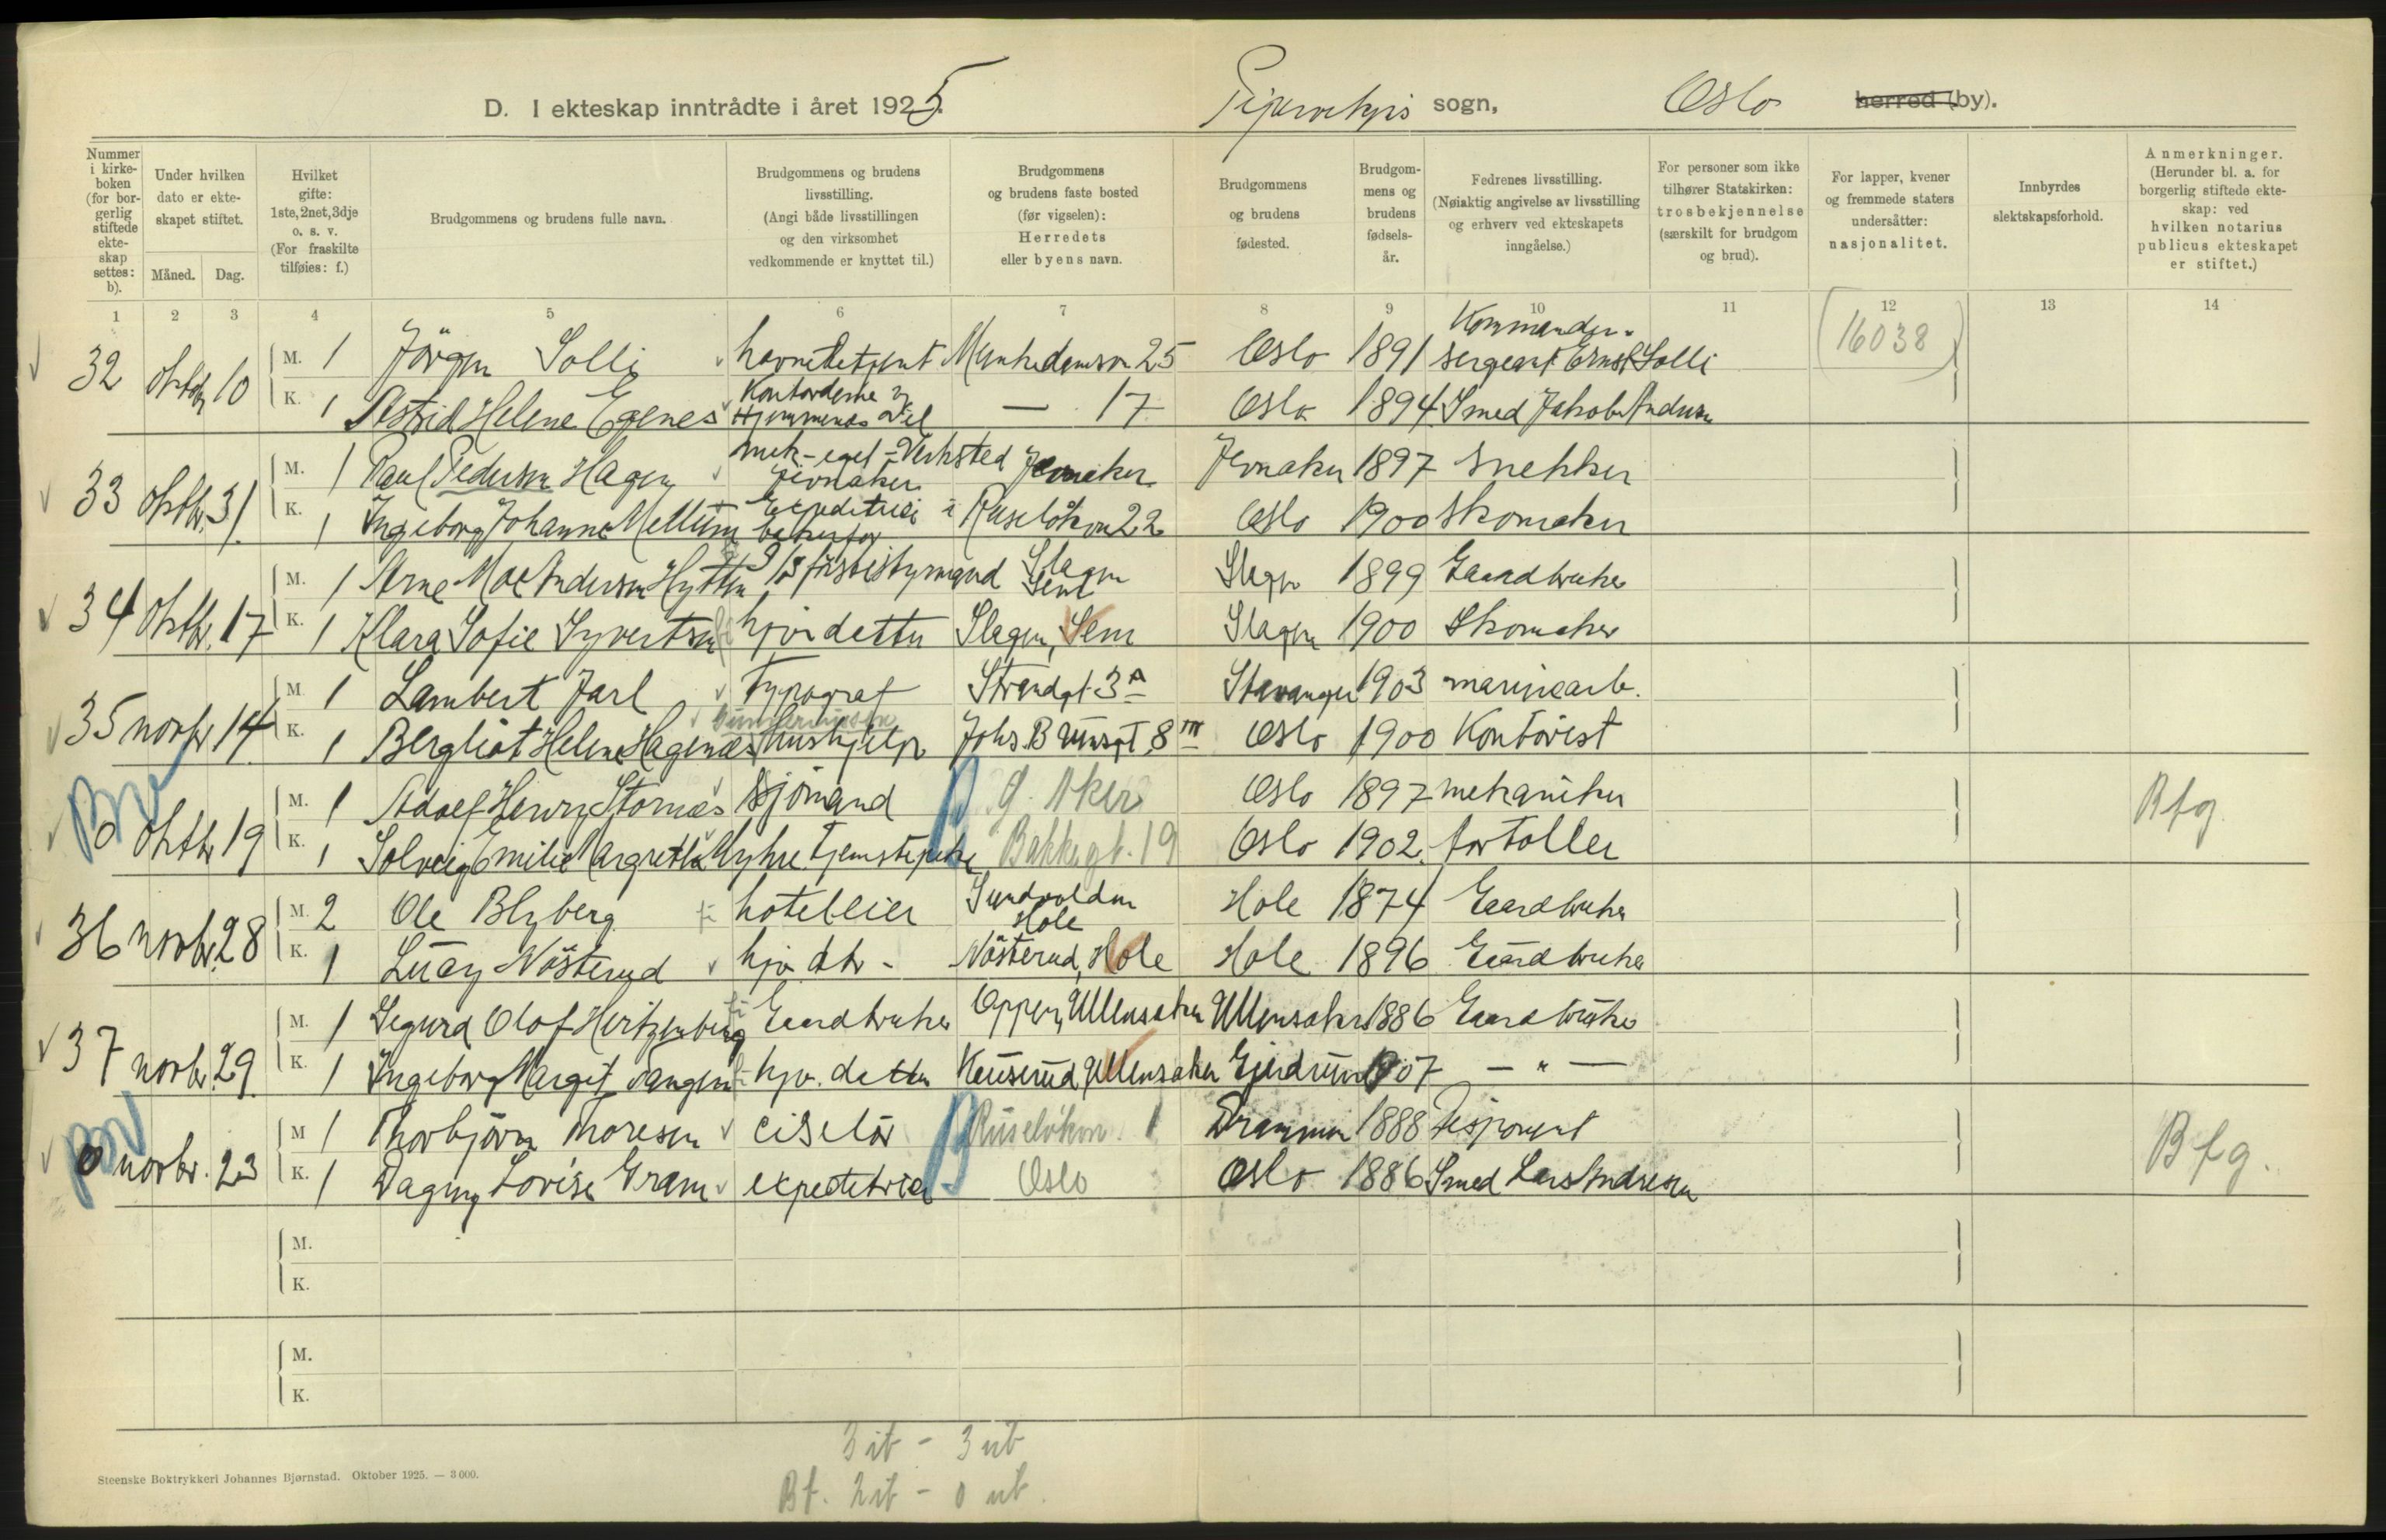 D. I ekteskap inntrådte i året 1925. sogn, Oslo herred (by).
Nummer i kirke-boken (for bor-gerlig stiftede ekte-skap settes: b).
Under hvilken dato er ekte-skapet stiftet.
Måned. Dag.
Hvilket gifte: 1ste, 2net, 3dje o. s. v. (For fraskilte tilføies: f.)
Brudgommens og brudens fulle navn.
Brudgommens og brudens livsstilling. (Angi både livsstillingen og den virksomhet vedkommende er knyttet til.)
Brudgommens og brudens faste bosted (før vigselen): Herredets eller byens navn.
Brudgommens og brudens fødested.
Brudgom-mens og brudens fødsels-år.
Fedrenes livsstilling. (Nøiaktig angivelse av livsstilling og erhverv ved ekteskapets inngåelse.)
For personer som ikke tilhører Statskirken: trosbekjennelse (særskilt for brudgom og brud).
For lapper, kvener og fremmede staters undersåtter: nasjonalitet.
Innbyrdes slektskapsforhold.
Anmerkninger. (Herunder bl. a. for borgerlig stiftede ekte-skap: ved hvilken notarius publicus ekteskapet er stiftet.)
1 2 3 4 5 6 7 8 9 10 11 12 13 14
32 10 M. 1 Jörgen Solli Munkedamsvn 25 Oslo 1891 sergeant Ernst Solli (16038)
K. 1 Astrid Helene Egenes — 17 Oslo 1894 Smed Jakob Andersen
33 Oktbr. 31. M. 1 Paul Pedersen Hagen mek - eget - Verksted Jevnaker Jevnaker Jevnaker 1897 snekker
K. 1 Ingeborg Johanne Mellum Expeditrice i Ruselökvn 22 Oslo 1900 skomaker
34 Oktbr. 17 M. 1 Arne Moe Andersen Hytten förstestyrmand Slagen Sem Slagen 1899 Gaardbruker
K. 1 Klara Sofie Syvertsen hjv. datter Slagen, Sem Slagen 1900 Skomaker
35 novbr 14. M. 1 Lambert Jarl Typograf Strandgt. 3 A Stavanger 1903 marinearb.
K. 1 Bergliot Helene Hagenæs Hushjelp Johs. Brunsgt. 8 III Oslo 1900 Kontorist
0 Oktbr 19 M. 1 Adolf Henry Stornæs Sjömand g. Aker Oslo 1897 mekaniker Bfg.
K. 1 Solveig Emilie Margrethe Myhre Tjenestepike Bakkegt. 19 Oslo 1902. fortoller
36 novbr. 28 M. 2 Ole Blyberg hotelleier Sundvolden Hole Hole 1874 Gaardbruker
K. 1 Lucy Nösterud hjv. dtr - Nösterud, Hole Hole 1896 Gaardbruker
37 novbr. 29. M. 1 Sigurd Olof Hertzenberg Gaardbruker Oppen, Ullensaker Ullensaker 1886 Gaardbruker
K. 1 Ingeborg Margit Tangen hjv. datter Kauserud, Ullensaker Gjerdrum 1907 — " —
0 novbr. 23 M. 1 Thorbjörn Thoresen ciselör Ruselökvn. 1 Drammen 1888 Disponent Bfg.
K. 1 Dagny Lovise Gram expeditrice Oslo Oslo 1886 Smed Lars Andresen
M.
K.
M.
K.
3 it - 3 ut
Bf. 2 it - 0 ut.
Steenske Boktrykkeri Johannes Bjørnstad. Oktober 1925. — 3000.